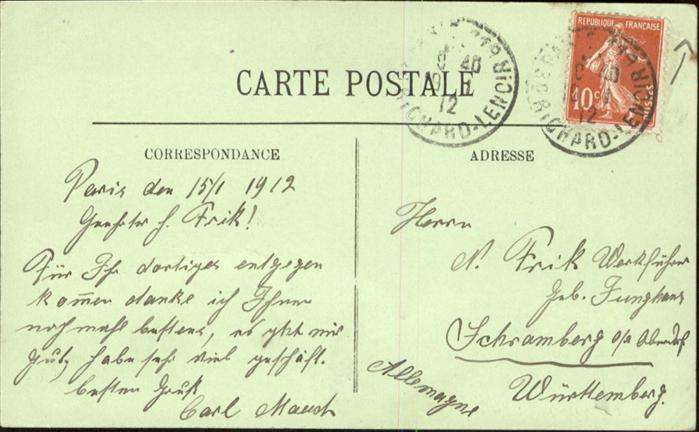 CARTE POSTALE
RÉPUBLIQUE FRANÇAISE
10c
POSTES
RICHARD-LENOIR
12
CORRESPONDANCE
Paris den 15/1 1912
Geehrter H. Frik!
Für Ihr dortiges entgegen
kommen danke ich Ihnen
nochmals bestens, es geht mir
gut, habe sehr viel geschäft.
besten Gruß
Carl
ADRESSE
Herrn
N. Frik Werkführer
Geb. Junghans
Schramberg o/a Oberndorf
Württemberg.
Allemagne